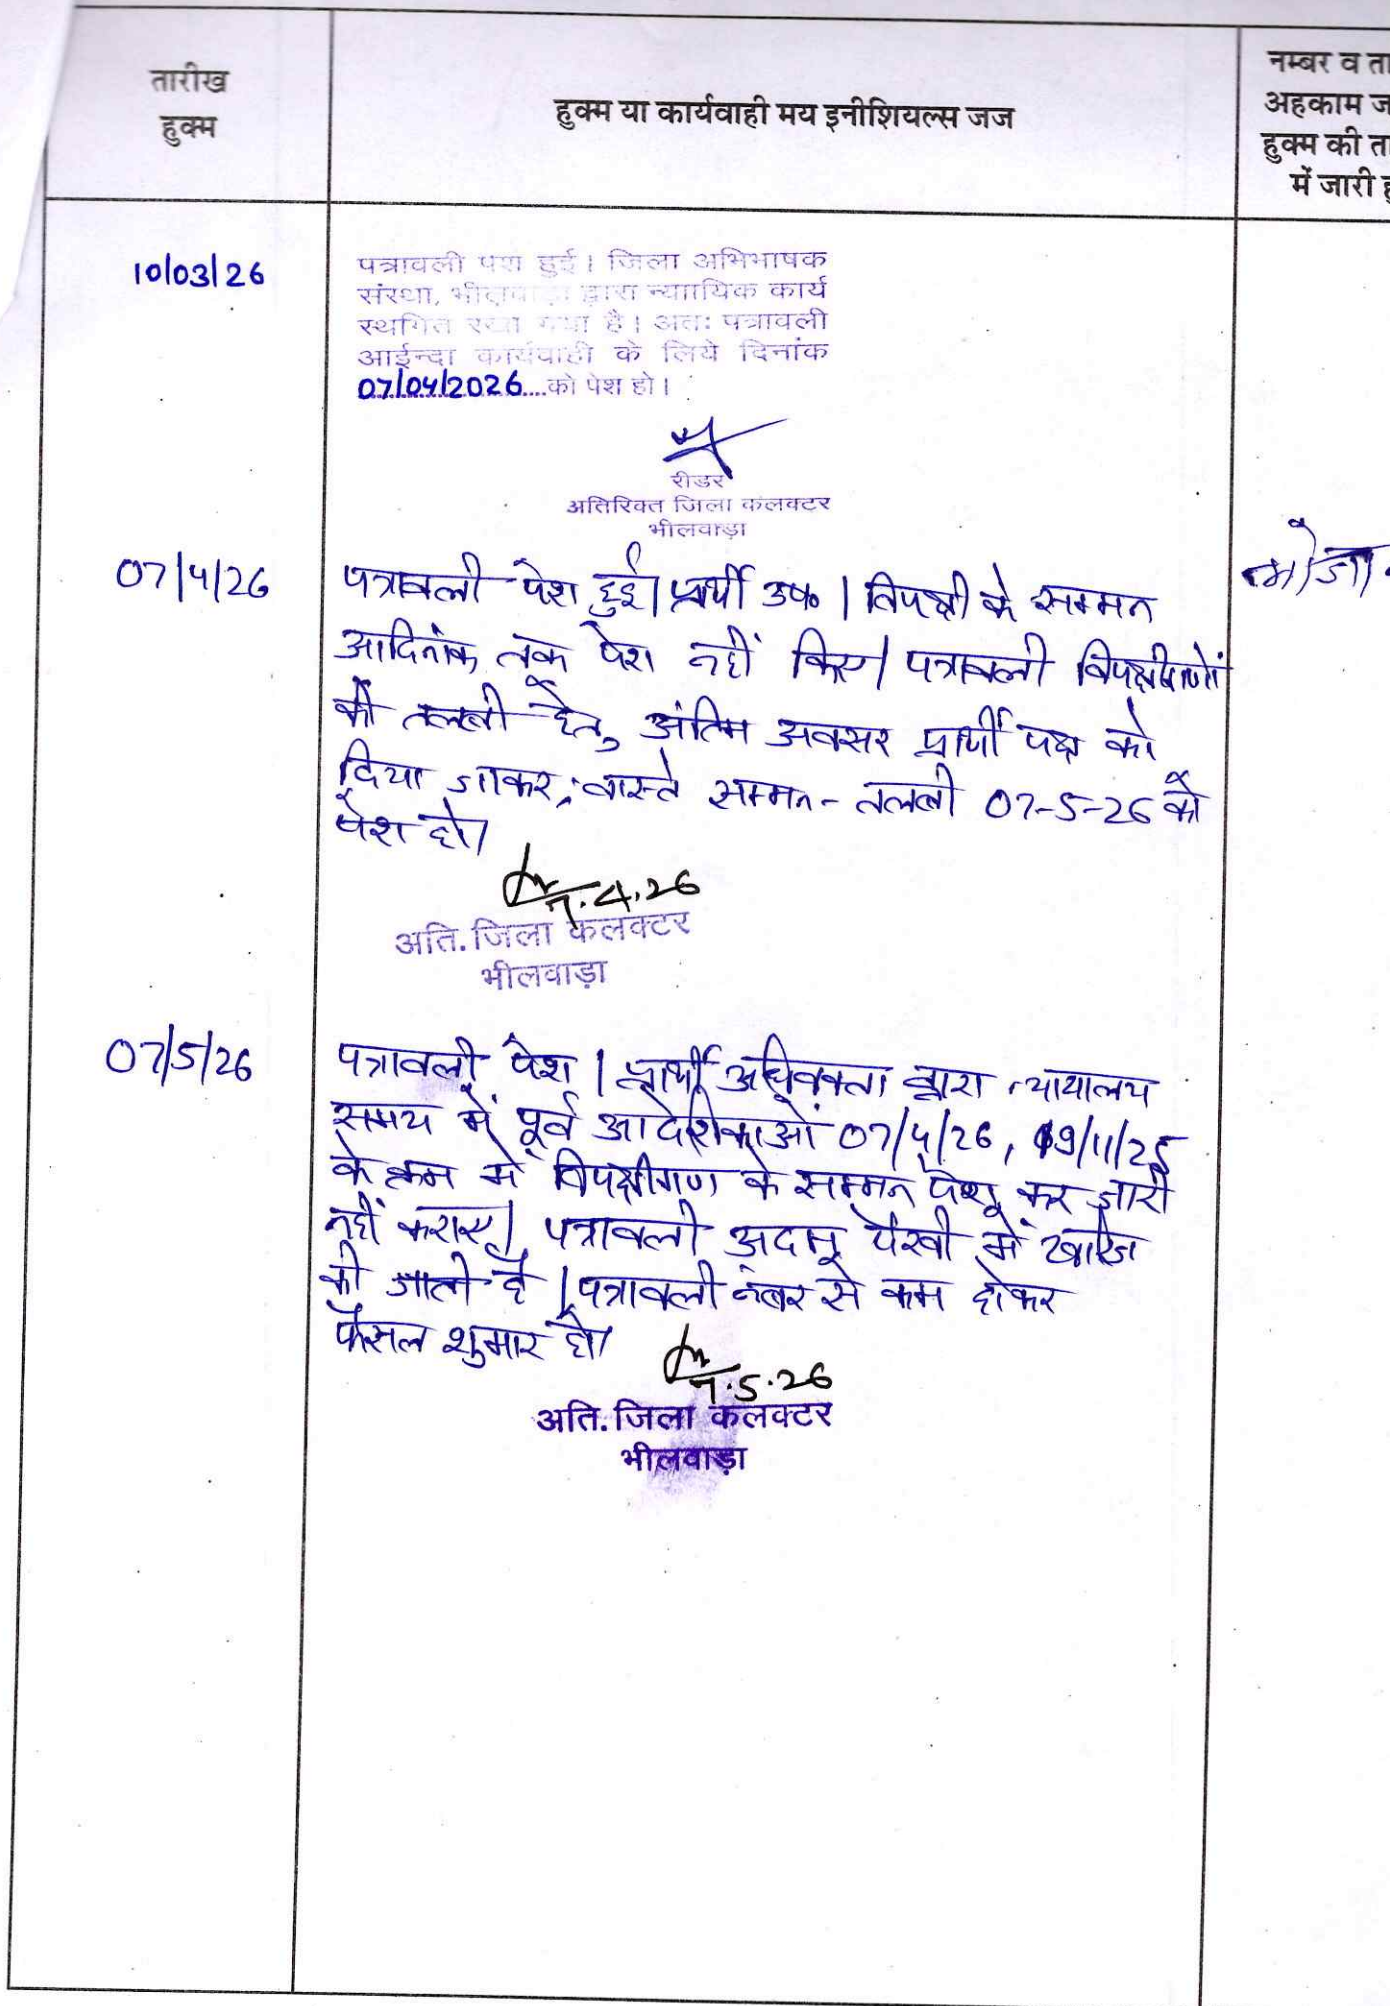 तारीख
हुक्म
हुक्म या कार्यवाही मय इनीशियल्स जज
नम्बर व ता
अहकाम ज
हुक्म की ता
में जारी हु
10/03/26
पत्रावली पेश हुई। जिला अभिभाषक
संस्था, भीलवाड़ा द्वारा न्यायिक कार्य
स्थगित रखा गया है। अतः पत्रावली
आईन्दा कार्यवाही के लिये दिनांक
07/04/2026....को पेश हो।
रीडर
अतिरिक्त जिला कलक्टर
भीलवाड़ा
07/4/26
पत्रावली पेश हुई। प्रार्थी उप०। विपक्षी के सम्मन
आदिनांक तक पेश नहीं किए। पत्रावली विपक्षीगणों
की तलबी हेतु अंतिम अवसर प्रार्थी पक्ष को
दिया जाकर, वास्ते सम्मन - तलबी 07-5-26 को
पेश हो।
7.4.26
अति. जिला कलक्टर
भीलवाड़ा
07/5/26
पत्रावली पेश। प्रार्थी अधिवक्ता द्वारा न्यायालय
समय में पूर्व आदेशिकाओं 07/4/26, 19/11/25
के क्रम में विपक्षीगण के सम्मन पेश कर जारी
नहीं कराए। पत्रावली अदम पैरवी में खारिज
की जाती है। पत्रावली नंबर से कम होकर
फैसल शुमार हो।
7.5.26
अति. जिला कलक्टर
भीलवाड़ा